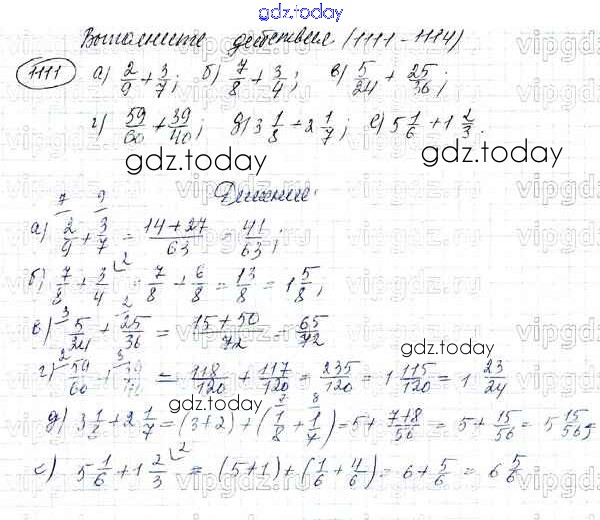 gdz.today
Выполните действия (1111-1114)
1111 а) 2/9 + 3/7; б) 7/8 + 3/4; в) 5/24 + 25/36;
г) 59/60 + 39/40; д) 3 1/8 + 2 1/7; е) 5 1/6 + 1 2/3.
gdz.today gdz.today
Решение:
а) 2/9 + 3/7 = 14+27/63 = 41/63;
б) 7/8 + 3/4 = 7/8 + 6/8 = 13/8 = 1 5/8;
в) 5/24 + 25/36 = 15+50/72 = 65/72
gdz.today
г) 59/60 + 39/40 = 118/120 + 117/120 = 235/120 = 1 115/120 = 1 23/24
gdz.today
д) 3 1/8 + 2 1/7 = (3+2) + (1/8 + 1/7) = 5 + 7+8/56 = 5 + 15/56 = 5 15/56
е) 5 1/6 + 1 2/3 = (5+1) + (1/6 + 4/6) = 6 + 5/6 = 6 5/6